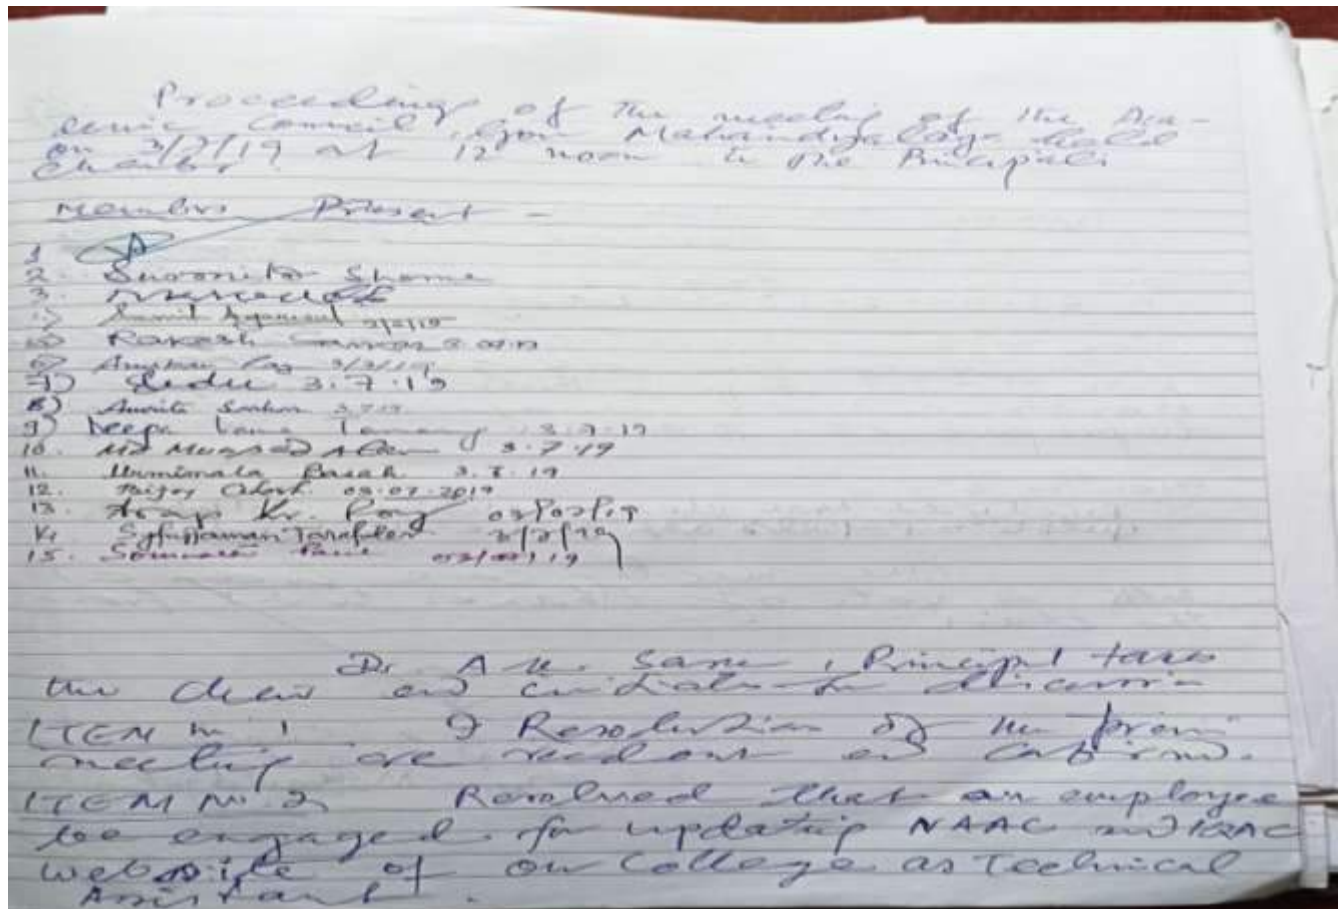 Proceedings of the meeting of the Aca-
demic Council, Mahavidyalaya held
on 3/7/19 at 12 noon in the Principal's
Chamber.
Members Present -
1
2. Suromitra Shome
3.
4) Sumit Agarwal 3/7/19
5) Rakesh Sarkar 3.07.19
6) 3/7/19
7) 3.7.19
8) Amrita Sarkar 3.7.19
9) Deepa Lama Tamang 3.7.19
10. Md Muqsad Alam 3.7.19
11. Urmimala Basak 3.7.19
12. Ghosh 03.07.2019
13. Kr. 03/07/19
14. Syfujjaman Tarafder 3/7/19
15. 03/07/19
Dr. A K. , Principal takes
the chair and initiates the discussion
ITEM No 1 Resolution of the previous
meeting are readout and confirmed.
ITEM No 2 Resolved that an employee
be engaged for updating NAAC and IQAC
website of our College as Technical
Assistant.